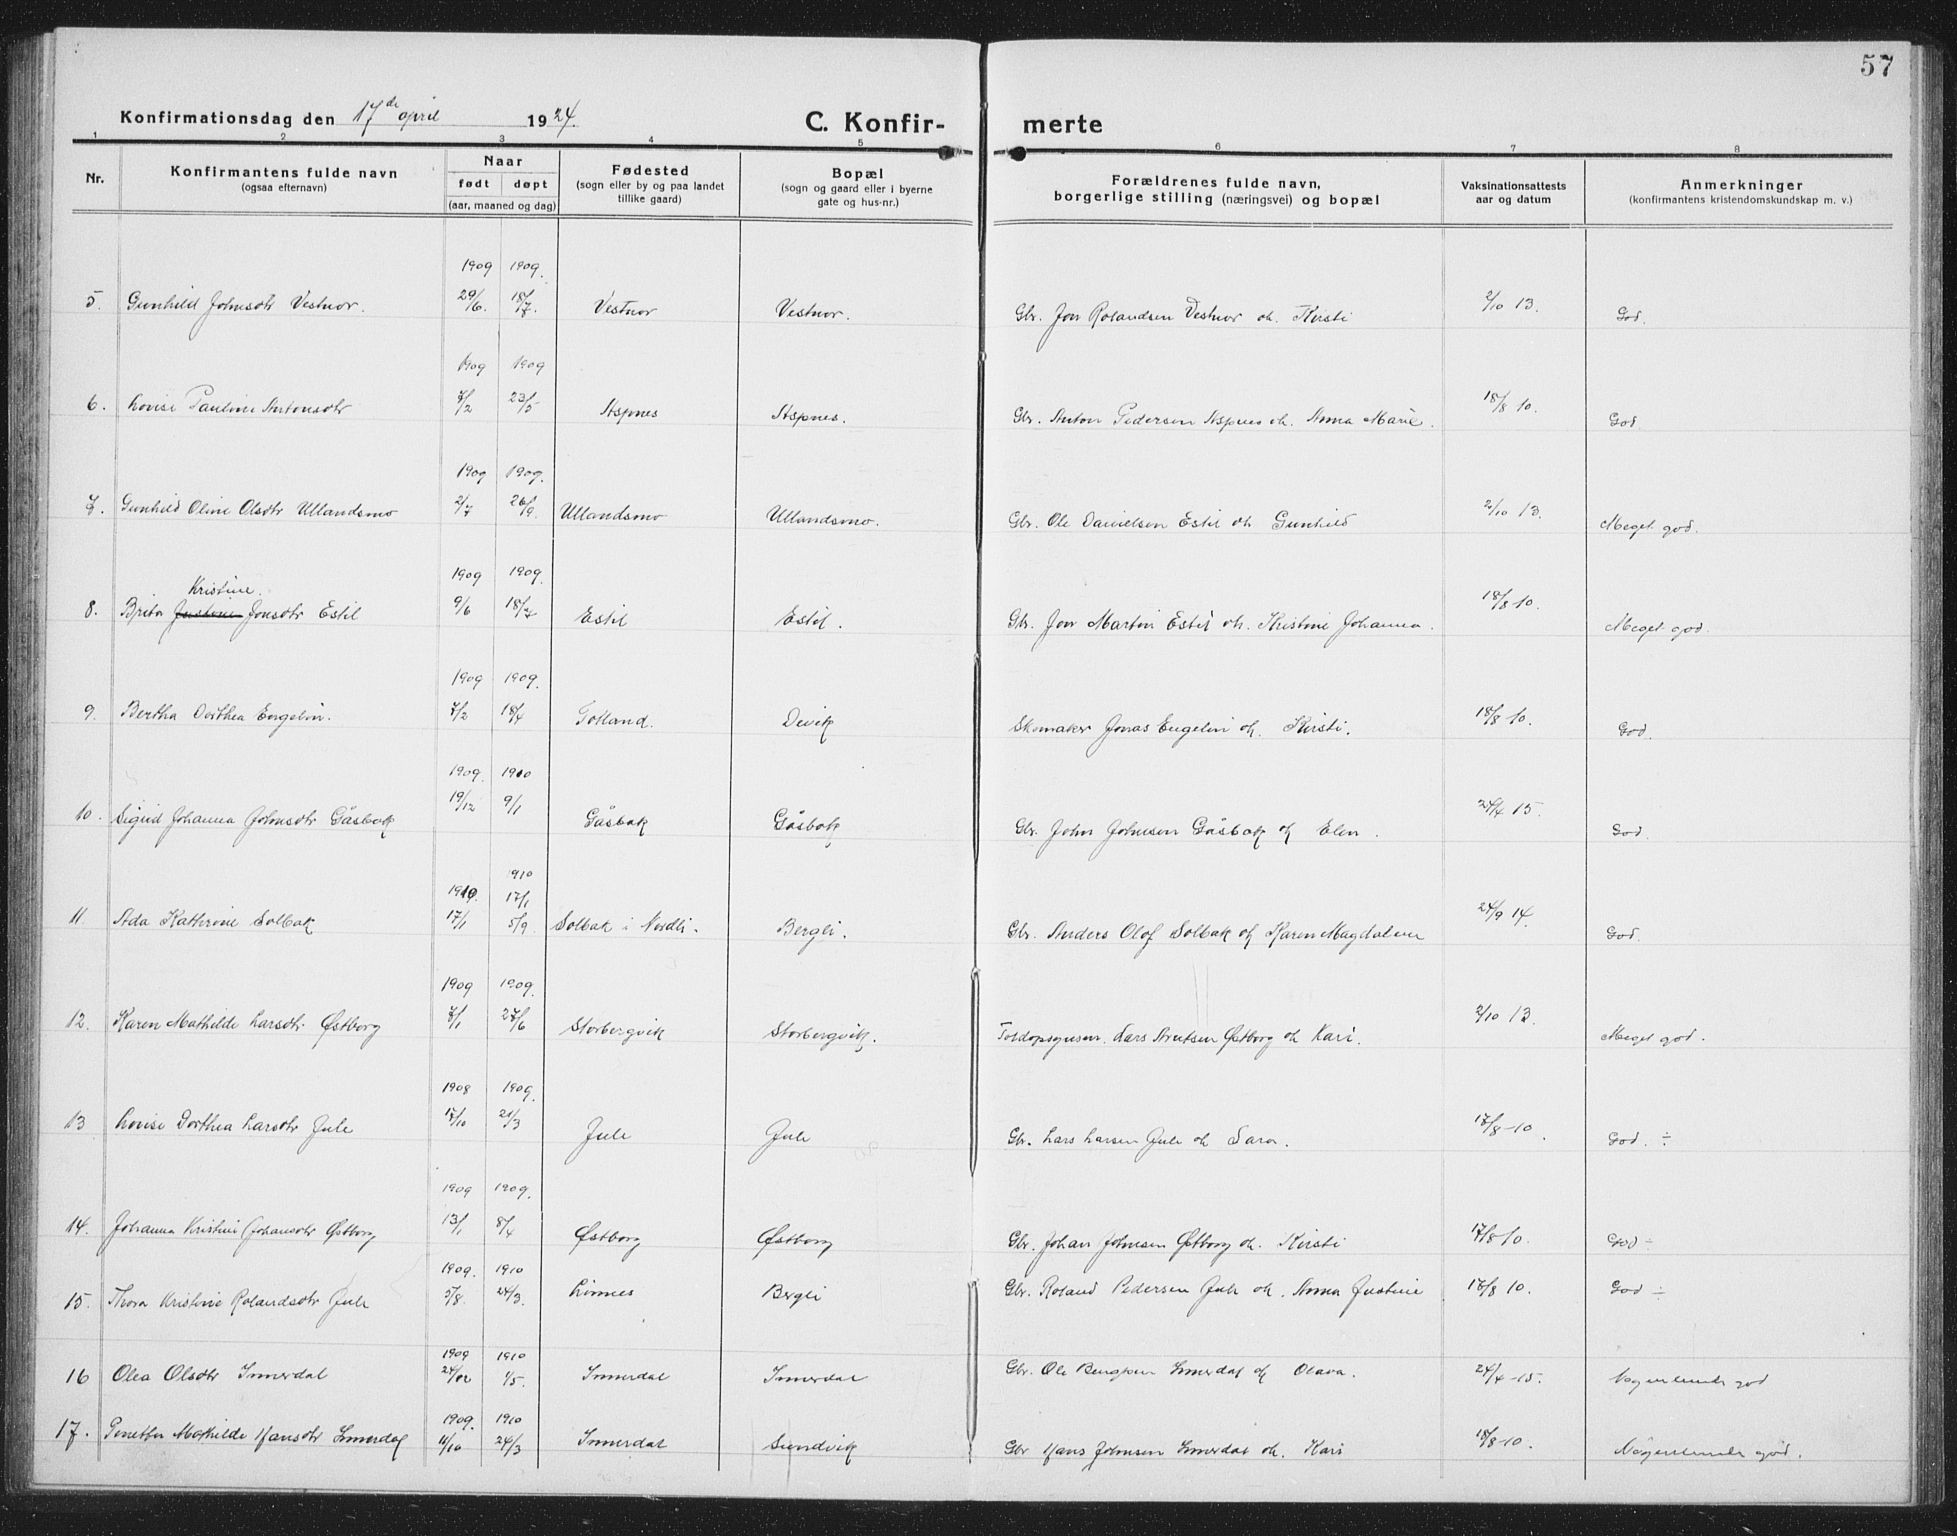 57
Konfirmationsdag den 17de april 1924.
C. Konfir- merte
1 2 3 4 5 6 7 8
Nr.
Konfirmantens fulde navn
(ogsaa efternavn)
Naar
født døpt
(aar, maaned og dag)
Fødested
(sogn eller by og paa landet
tillike gaard)
Bopæl
(sogn og gaard eller i byerne
gate og hus-nr.)
Forældrenes fulde navn,
borgerlige stilling (næringsvei) og bopæl
Vaksinationsattests
aar og datum
Anmerkninger
(konfirmantens kristendomskundskap m. v.)
1909 1909.
5. Gunhild Johnsdtr Vestnor. 29/6. 18/7. Vestnor Vestnor. Gbr. Jon Rolandsen Vestnor oh. Kirsti 2/10 13. God.
1909 1909
6. Lovise Pauline Antonsdtr 7/2 23/5 Aspnes Aspnes. Gbr. Anton Pedersen Aspnes oh. Anna Marie. 18/8 10. God
1909 1909.
7. Gunhild Oline Olsdtr Ullandsmo 2/7 26/9. Ullandsmo Ullandsmo. Gbr. Ole Danielsen Estil oh Gunhild 2/10 13. Meget god.
Kristine. 1909 1909.
8. Brita Justine Jonsdtr Estil 9/6 18/7 Estil Estil. Gbr. Jon Martin Estil oh. Kristine Johanna. 18/8 10. Meget god.
1909 1909.
9. Bertha Dorthea Engelin. 7/2 18/4 Totland. Devik Skomaker Jonas Engelin oh. Kirsti. 18/8 10. God.
1909. 1910
10. Sigrid Johanna Johnsdtr Gåsbak 19/12 9/1 Gåsbak Gåsbak Gbr. John Johnsen Gåsbak oh Elen. 24/4 15. God.
1910
1910. 17/1
11 Ada Kathrine Solbak 17/1 5/9. Solbak i Nordli. Bergli. Gbr. Anders Olof Solbak oh Karen Magdalena 24/9 14. God.
1909 1909.
12. Karen Mathilde Larsdtr Østborg 7/1 27/6 Storbergvik Storbergvik. Toldopsynsm. Lars Arntsen Østborg oh Kari. 2/10 13. Meget god.
1908 1909.
13 Lovise Dorthea Larsdtr Jule 17/10 21/3 Jule Jule Gbr. Lars Larsen Jule oh Sara. 17/8-10. God. ÷
1909 1909.
14. Johanna Kristine Johansdtr Østborg 13/1 8/4 Østborg Østborg Gbr. Johan Johnsen Østborg oh. Kirsti 17/8 10. God ÷
1909. 1910
15. Thora Kristine Rolandsdtr Jule 5/8. 24/3. Linnes Bergli Gbr. Roland Pedersen Jule oh. Anna Justine 17/8 10. God ÷
1909 1910
16 Olea Olsdtr Innerdal 24/12 1/5. Innerdal Innerdal Gbr. Ole Bengtsen Innerdal oh Olava. 24/4-15. Nogenlunde god
1909. 1910
17. Mathilde Hansdtr Innerdal 11/10 24/3 Innerdal Sundvik Gbr Hans Johnsen Innerdal oh. Kari 18/8-10. Nogenlunde god.